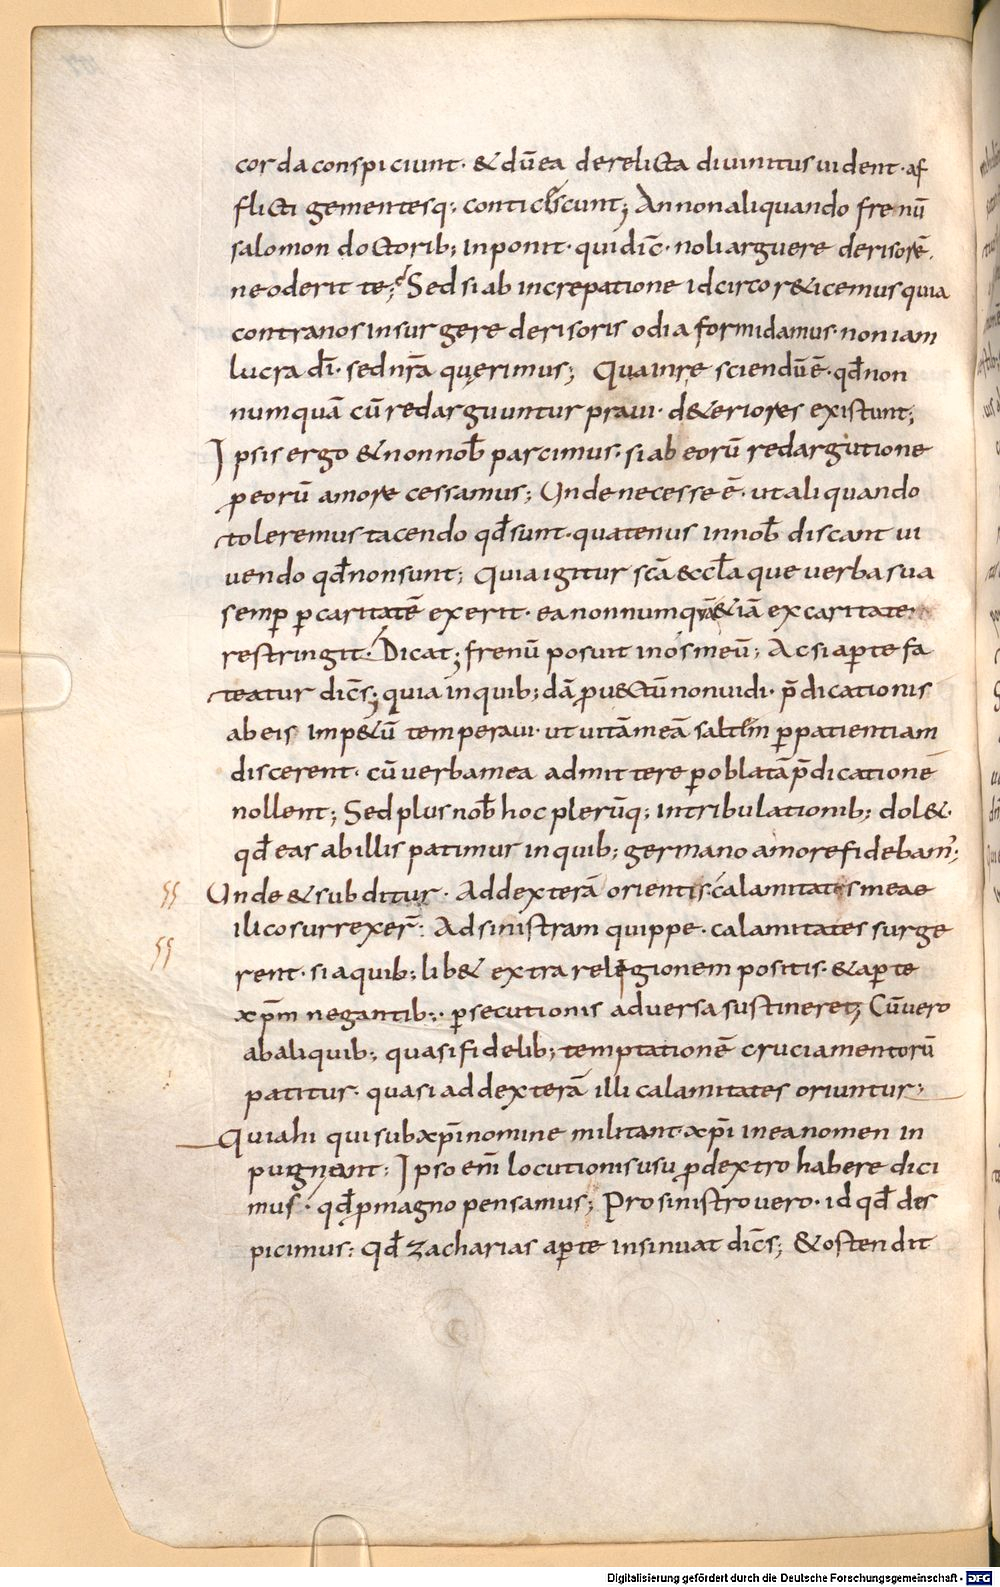 corda conspiciunt· & dū ea derelicta diuinitus uident· af
flicti gementesq; conticescunt; An non aliquando frenū
salomon doctorib; inponit· qui dic̄· noli arguere derisorē·
ne oderit te; Sed si ab increpatione idcirco r&icemus quia
contra nos insurgere derisoris odia formidamus· non iam
lucra dī· sed nr̄a querimus; Qua in re sciendū ē· qđ non
numquā cū redarguuntur praui· d&eriores existunt;
Ipsis ergo & non nob̄ parcimus· si ab eorū redargutione
p eorū amore cessamus; Unde necesse ē· ut aliquando
toleremus tacendo qđ sunt· quatenus in nob̄ discant ui
uendo qđ non sunt; Quia igitur scā eccl̄a que uerba sua
semp p caritatē exerit· ea non numquā &iā ex caritate
restringit· Dicat; frenū posuit in os meū; Ac si apte fa
teatur dicēs; quia in quib;dā puectū non uidi· p̄dicationis
ab eis imp&ū temperaui· ut uitā meā saltim p patientiam
discerent· cū uerba mea admittere p oblatā p̄dicationē
nollent; Sed plus nob̄ hoc plerūq; in tribulationib; dol&·
qđ eas ab illis patimur in quib; germano amore fidebam';
Unde & subditur· Ad dexterā orientis calamitates meae
ilico surrexer̄: Ad sinistram quippe· calamitates surge
rent· si a quib;lib& extra relegionem positis· & apte
xp̄m negantib;· psecutionis aduersa sustineret; Cū uero
ab aliquib; quasi fidelib; temptationē cruciamentorū
patitur· quasi ad dexterā illi calamitates oriuntur;
Quia hi qui sub xp̄i nomine militant xp̄i in ea nomen in
pugnant; Ipso em̄ locutionis usu p dextro habere dici
mus· qđ p magno pensamus; Pro sinistro uero· id qđ des
picimus: Qđ zacharias apte insinuat dicēs; & ostendit
Digitalisierung gefördert durch die Deutsche Forschungsgemeinschaft - DFG